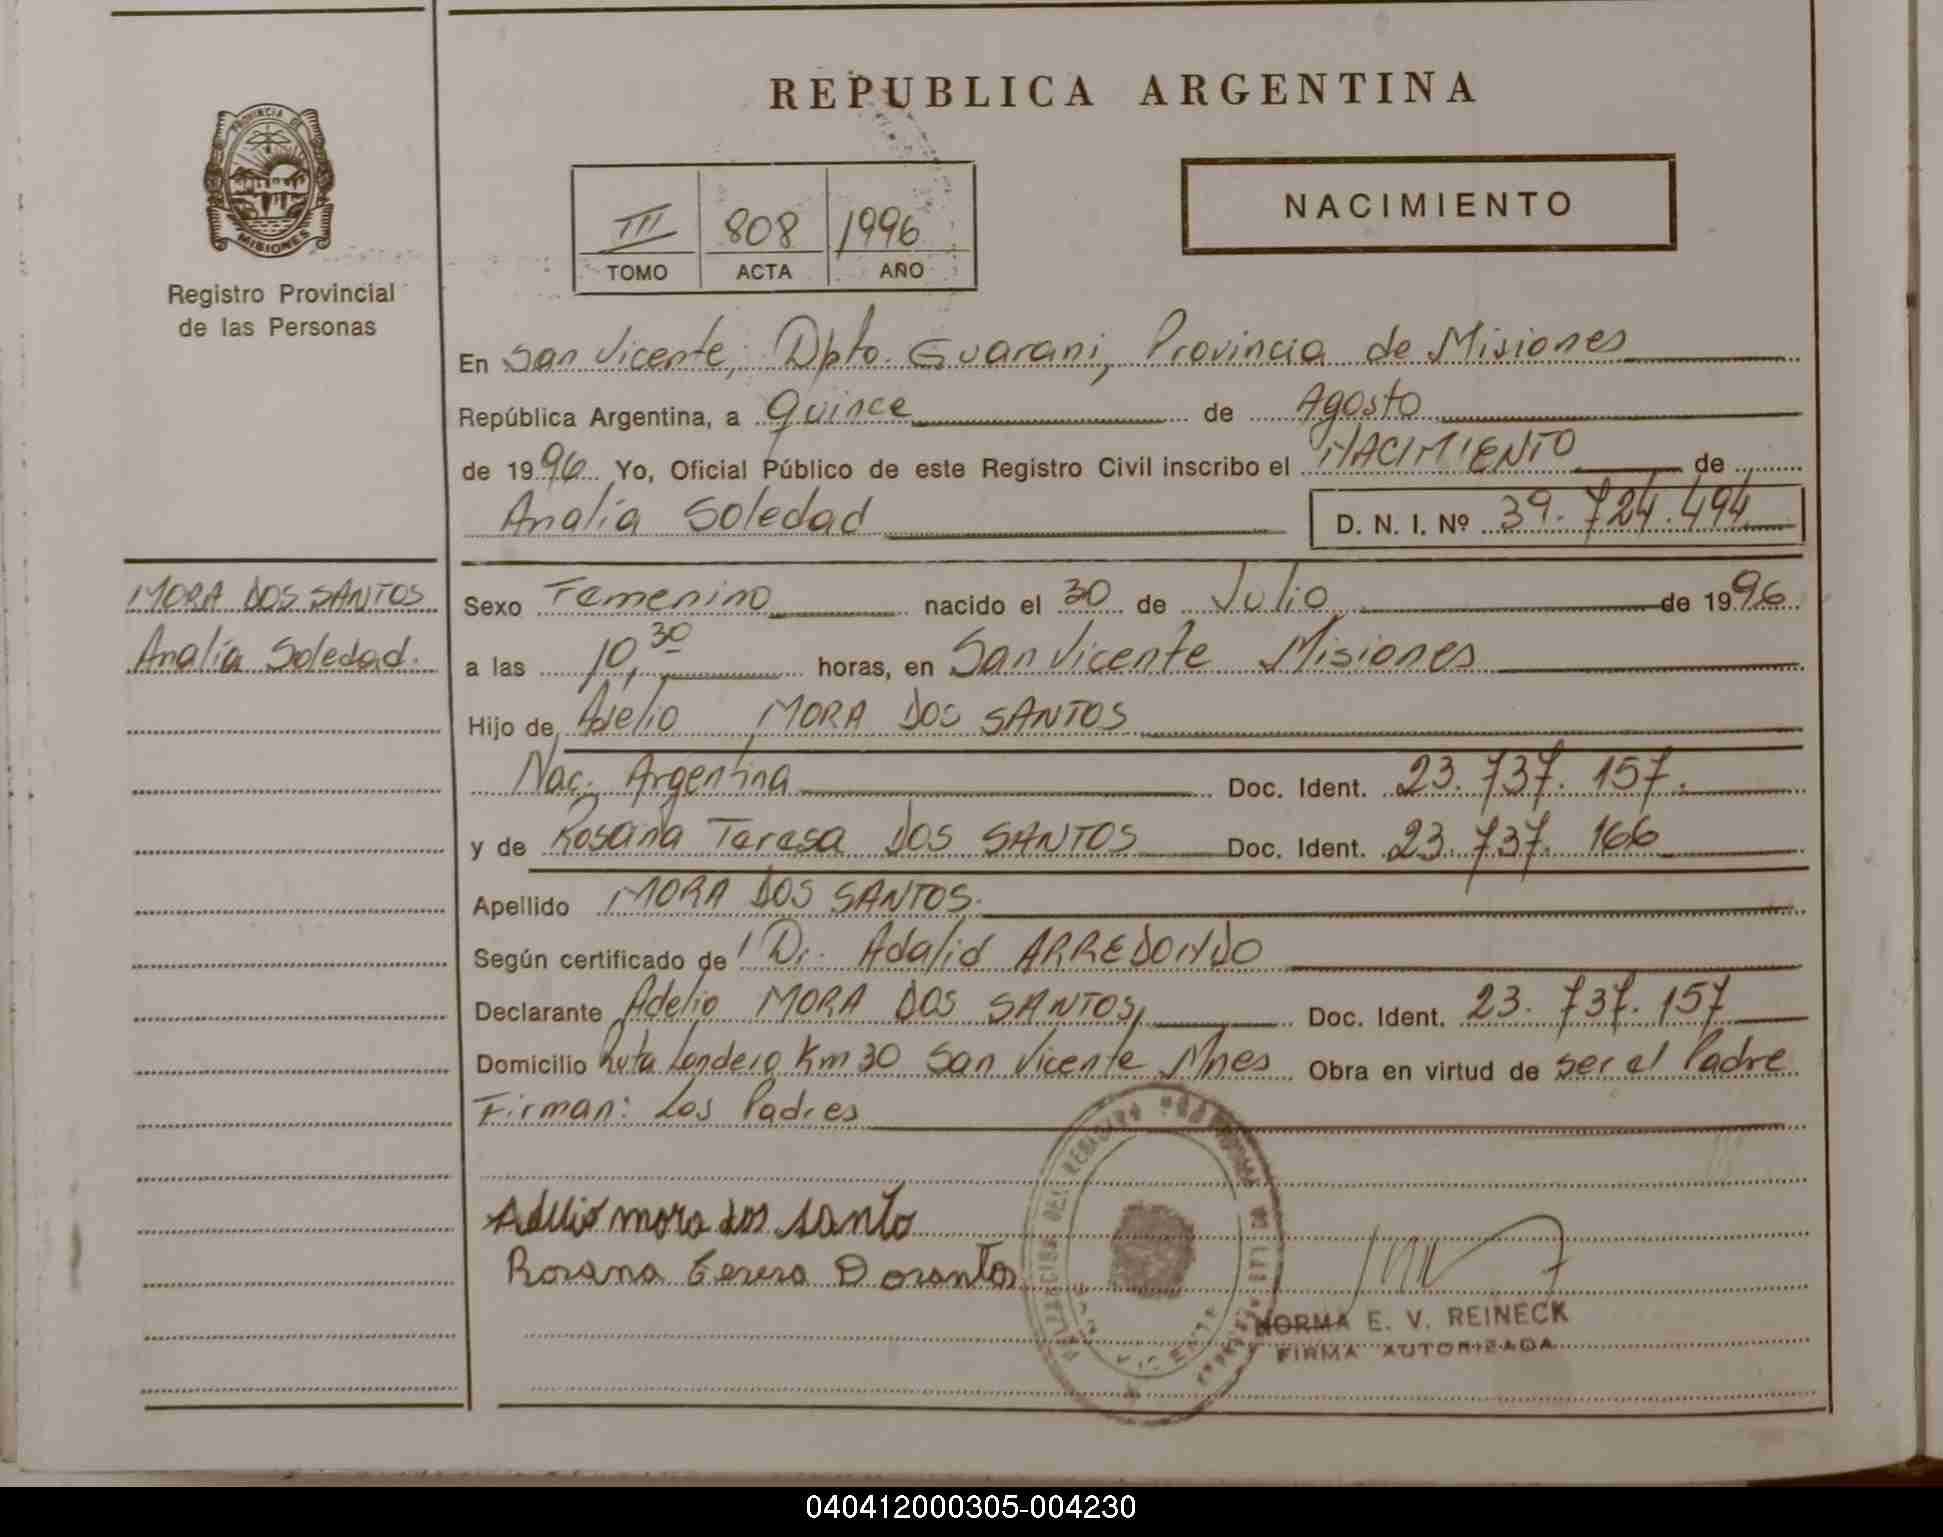 REPUBLICA ARGENTINA
PROVINCIA DE
MISIONES
Registro Provincial
de las Personas
III 808 1996
TOMO ACTA AÑO
NACIMIENTO
En San Vicente, Dpto. Guarani, Provincia de Misiones
República Argentina, a quince de Agosto
de 1996 Yo, Oficial Público de este Registro Civil inscribo el NACIMIENTO de
Analía Soledad D. N. I. Nº 39.724.494
MORA DOS SANTOS
Analía Soledad.
Sexo Femenino nacido el 30 de Julio de 1996
a las 10,30 horas, en San Vicente Misiones
Hijo de Adelio MORA DOS SANTOS
Nac. Argentina Doc. Ident. 23.737.157.
y de Rosana Teresa DOS SANTOS Doc. Ident. 23.737.166
Apellido MORA DOS SANTOS.
Según certificado de Dr. Adalid ARREDONDO
Declarante Adelio MORA DOS SANTOS, Doc. Ident. 23.737.157
Domicilio Ruta Londero Km 30 San Vicente Mnes Obra en virtud de ser el Padre
Firman: Los Padres
Adelio mora dos santo
Rosana Teresa Dosantos
NORMA E. V. REINECK
FIRMA AUTORIZADA
040412000305-004230